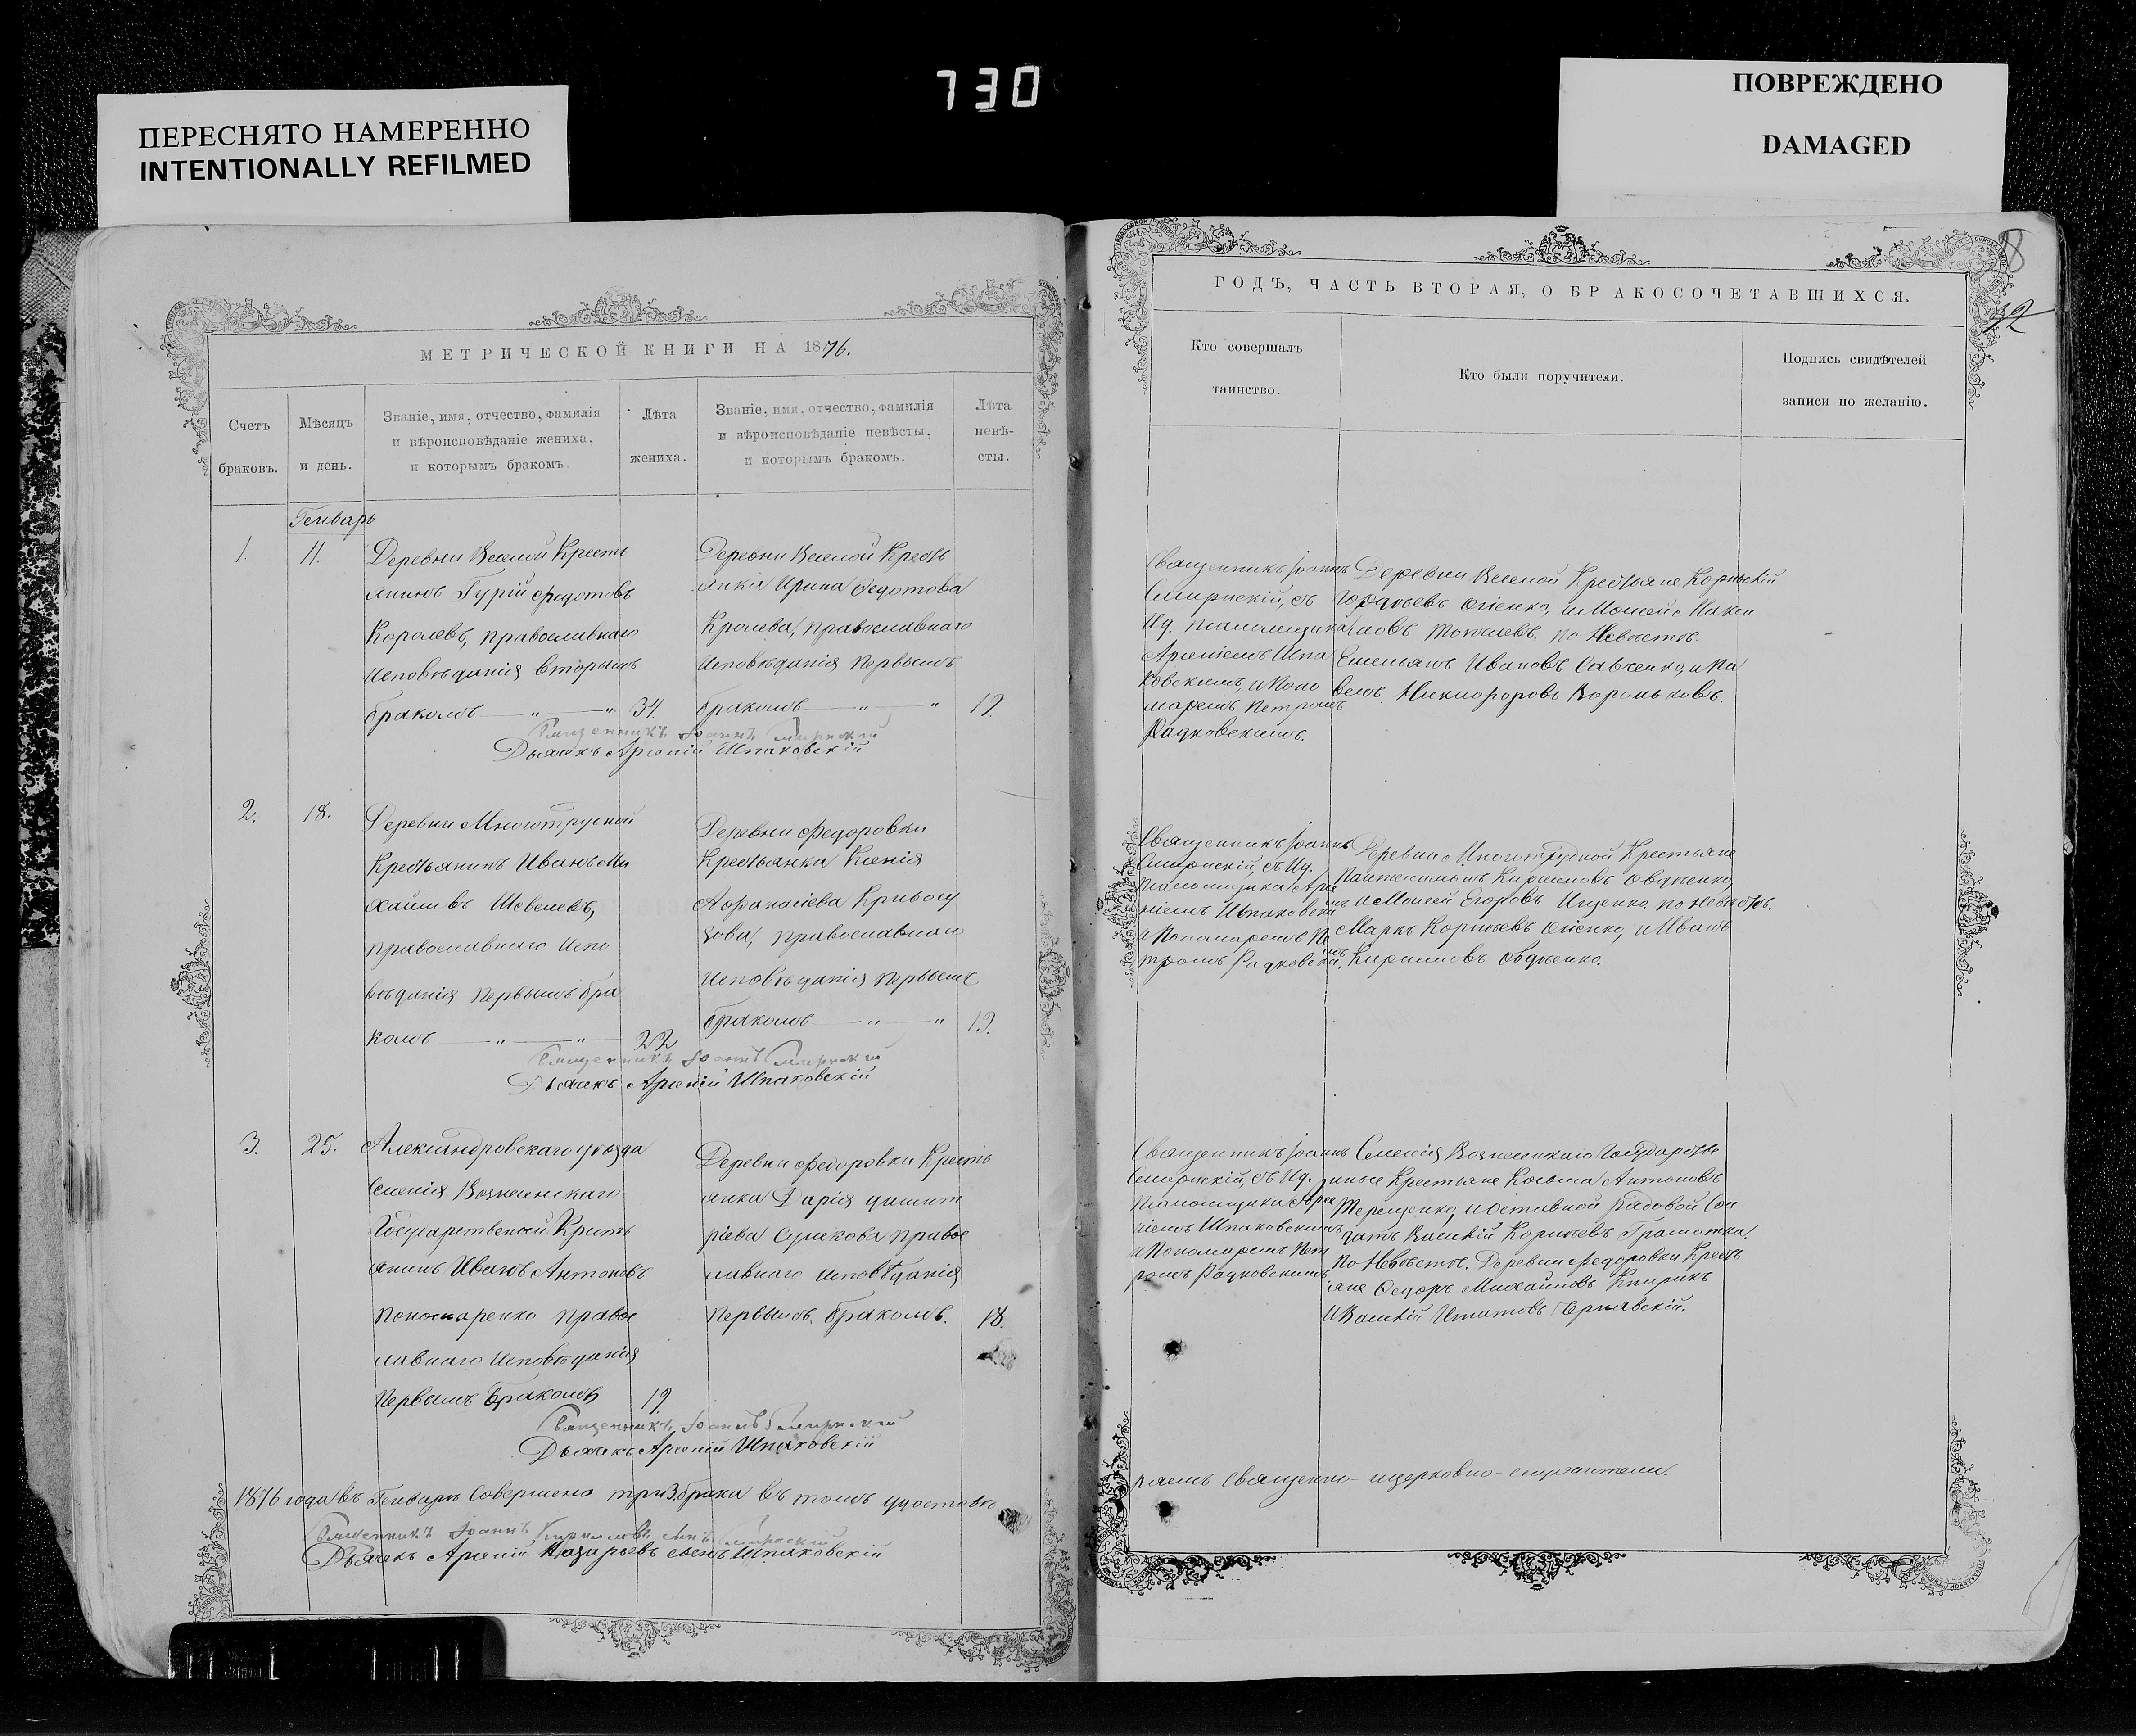 730
ПЕРЕСНЯТО НАМЕРЕННО
INTENTIONALLY REFILMED
ПОВРЕЖДЕНО
DAMAGED
МЕТРИЧЕСКОЙ КНИГИ НА 1876.
Счетъ
браковъ.
Мѣсяцъ
и день.
Званіе, имя, отчество, фамилія
и вѣроисповѣданіе жениха,
и которымъ бракомъ.
Лѣта
жениха.
Званіе, имя, отчество, фамилія
и вѣроисповѣданіе невѣсты,
и которымъ бракомъ.
Лѣта
невѣ-
сты.
Генварь
1.
11.
Деревни Веселой Кресть
янинъ Гурій Федотовъ
Королевъ, православнаго
исповѣданія вторымъ
бракомъ — " — "
34.
Деревни Веселой Кресть
янка Ирина Федотова
Кролева, православнаго
исповѣданія первымъ
бракомъ — " — "
19.
Священникъ Іоаннъ Смирнскій
Дьячекъ Арсеній Шпаковскій
2.
18.
Деревни Многотрудной
Крестьянинъ Иванъ Ми
хайловъ Шевелевъ,
православнаго испо
вѣданія первымъ бра
комъ — " — "
22
Деревни Федоровки
Крестьянка Ксенія
Афанасіева
православнаго
исповѣданія первымъ
бракомъ — " — "
19.
Священникъ Іоаннъ Смирнскій
Дьячекъ Арсеній Шпаковскій
3.
25.
Александровскаго уѣзда
Селенія Вознесенскаго
Государственный Кресть
янинъ Иванъ Антоновъ
Пономаренко правос
лавнаго исповѣданія
первымъ бракомъ
19.
Деревни Федоровки Кресть
янка Дарія Димит
ріева Сушкова правос
лавнаго исповѣданія
первымъ бракомъ.
18.
Священникъ Іоаннъ Смирнскій
Дьячекъ Арсеній Шпаковскій
1876 года въ Генварѣ совершено три 3. брака въ томъ удостовѣ
Священникъ Іоаннъ Кирилловъ сынъ Смирнскій
Дьячекъ Арсеній Назарьевъ сынъ Шпаковскій
8
12
ГОДЪ, ЧАСТЬ ВТОРАЯ, О БРАКОСОЧЕТАВШИХСЯ.
Кто совершалъ
таинство.
Кто были поручители.
Подпись свидѣтелей
записи по желанію.
Священникъ Іоаннъ
Смирнскій, съ
Ид. псаломщика
Арсеніемъ Шпа
ковскимъ, и Поно
маремъ Петромъ
Радковскимъ.
Деревни Веселой Крестьяне Корнилій
Юрьевъ и Моисей Макси
мовъ по Невѣстѣ.
Емельянъ Ивановъ Савченко, и Па
велъ Никифоровъ Вороньковъ.
Священникъ Іоаннъ
Смирнскій, съ Ид.
псаломщика Арсе
ніемъ Шпаковскимъ
и Пономаремъ Пе
тромъ Радковскимъ.
Деревни Многотрудной Крестьяне
Пантелимонъ Кирилловъ Овдѣенко,
и Моисей Егоровъ Ищенко. по невѣстѣ.
Маркъ Корнѣевъ и Иванъ
Кирилловъ Овдѣенко.
Священникъ Іоаннъ
Смирнскій, съ Ид.
псаломщика Арсе
ніемъ Шпаковскимъ
и Пономаремъ Пет-
ромъ Радковскимъ
Селенія Вознесенскаго Государстве
нные Крестьяне Косьма Антоновъ
Терещенко, и отставной рядовой Сол
датъ Василій Корнѣевъ
По Невѣстѣ. Деревни Федоровки Кресть
яне Федоръ Михайловъ
и Василій Игнатовъ
ряемъ Священно-ицерковно-служители.